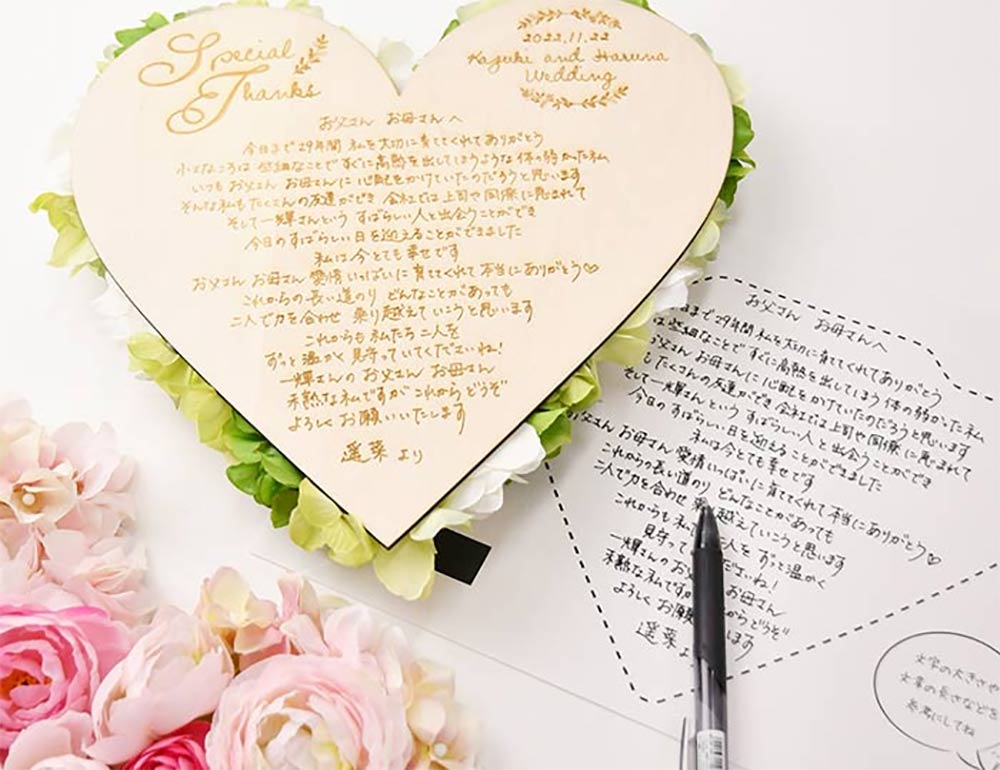 Special
Thanks
2022.11.22
Kazuki and Haruna
Wedding
お父さん お母さんへ
今日まで29年間 私を大切に育ててくれてありがとう
小さなころは 些細なことで すぐに高熱を出してしまうような 体の弱かった私
いつも お父さん お母さんに 心配をかけていたのだろうと思います
そんな私も たくさんの友達ができ 会社では上司や同僚に恵まれて
そして一輝さんという すばらしい人と出会うことができ
今日のすばらしい日を迎えることができました
私は今とても幸せです
お父さん お母さん 愛情いっぱいに育ててくれて 本当にありがとう♡
これからの長い道のり どんなことがあっても
二人で力を合わせ 乗り越えていこうと思います
これからも 私たち二人を
ずっと温かく見守っていてくださいね!
一輝さんの お父さん お母さん
未熟な私ですが これから どうぞ
よろしくお願いいたします
遥菜 より
お父さん お母さんへ
まで29年間 私を大切に育ててくれてありがとう
は 些細なことで すぐに高熱を出してしまう 体の弱かった私
父さん お母さんに 心配をかけていたのだろうと思います
も たくさんの友達ができ 会社では上司や同僚に恵まれて
そして一輝さんという すばらしい人と出会うことができ
今日のすばらしい日を迎えることができました
私は今とても幸せです
さん お母さん 愛情いっぱいに育ててくれて 本当にありがとう♡
これからの長い道のり どんなことがあっても
二人で力を合わせ 乗り越えていこうと思います
これからも 私 二人を ずっと温かく
見守って ださいね!
一輝さんの お父 お母さん
未熟な私です から どうぞ
よろしく お願 します
遥菜 よ
文字の大きさや
文章の長さなどを
参考にしてね